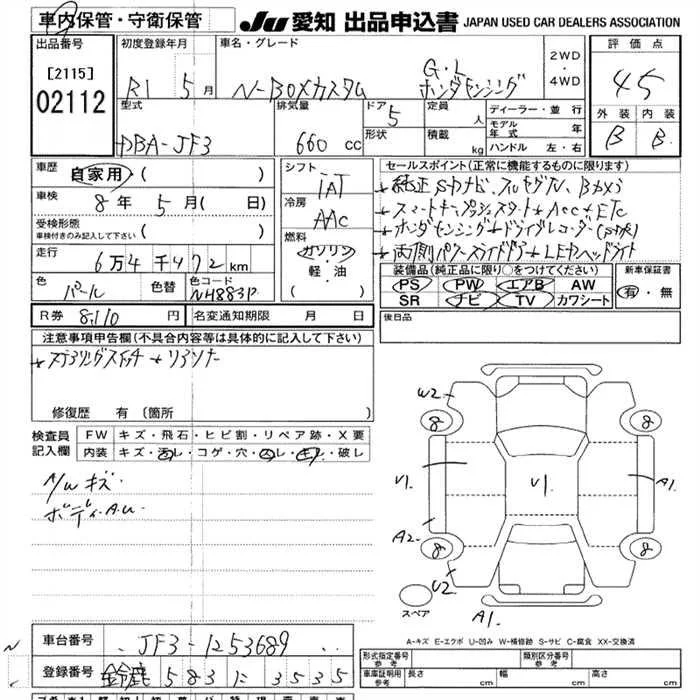 車内保管・守衛保管
JU 愛知 出品申込書 JAPAN USED CAR DEALERS ASSOCIATION
出品番号
[2115]
02112
初度登録年月
R1 5月
車名・グレード
N-BOXカスタム G・L ホンダセンシング
2WD
・
4WD
評価点
4.5
外装 内装
B B
型式
DBA-JF3
排気量
660 cc
ドア 5
形状
定員 人
積載 kg
ディーラー・並行
モデル年式 年
ハンドル 左・右
車歴 自家用 ( )
車検 8年 5月 ( 日)
受検形態
車検付きのみ記入して下さい ( )
走行
6万4千472km
色 パール
色替
色コード NH883P
シフト
IAT
冷房
AAC
燃料
ガソリン
軽・油
( )
セールスポイント(正常に機能するものに限ります)
純正SDナビ、フルセグTV、Bカメラ
スマートキー、プッシュスタート ACC ETC
ホンダセンシング ドライブレコーダー
両側パワースライドドア LEDヘッドライト
装備品(純正品に限り○をつけてください)
PS PW エアB AW
SR ナビ TV カワシート
新車保証書
有・無
後日品
R券 8,110 円
名変通知期限 月 日
注意事項申告欄(不具合内容等は具体的に記入して下さい)
修復歴 有(箇所 )
検査員記入欄
FW キズ・飛石・ヒビ割・リペア跡・X要
内装 キズ・汚レ・コゲ・穴・スレ・キレ・破レ
N/W キズ
ボディA.U
W2
8 8
V1 V1 A1
A2
8 8
W2
スペア
A1
A-キズ E-エクボ U-凹み W-補修跡 S-サビ C-腐食 XX-交換済
車台番号 JF3-1253689
登録番号 鈴鹿 583 に 3535
型式指定番号 参考
類別区分番号 参考
車庫証明用 参考
長さ cm
幅 cm
高さ cm